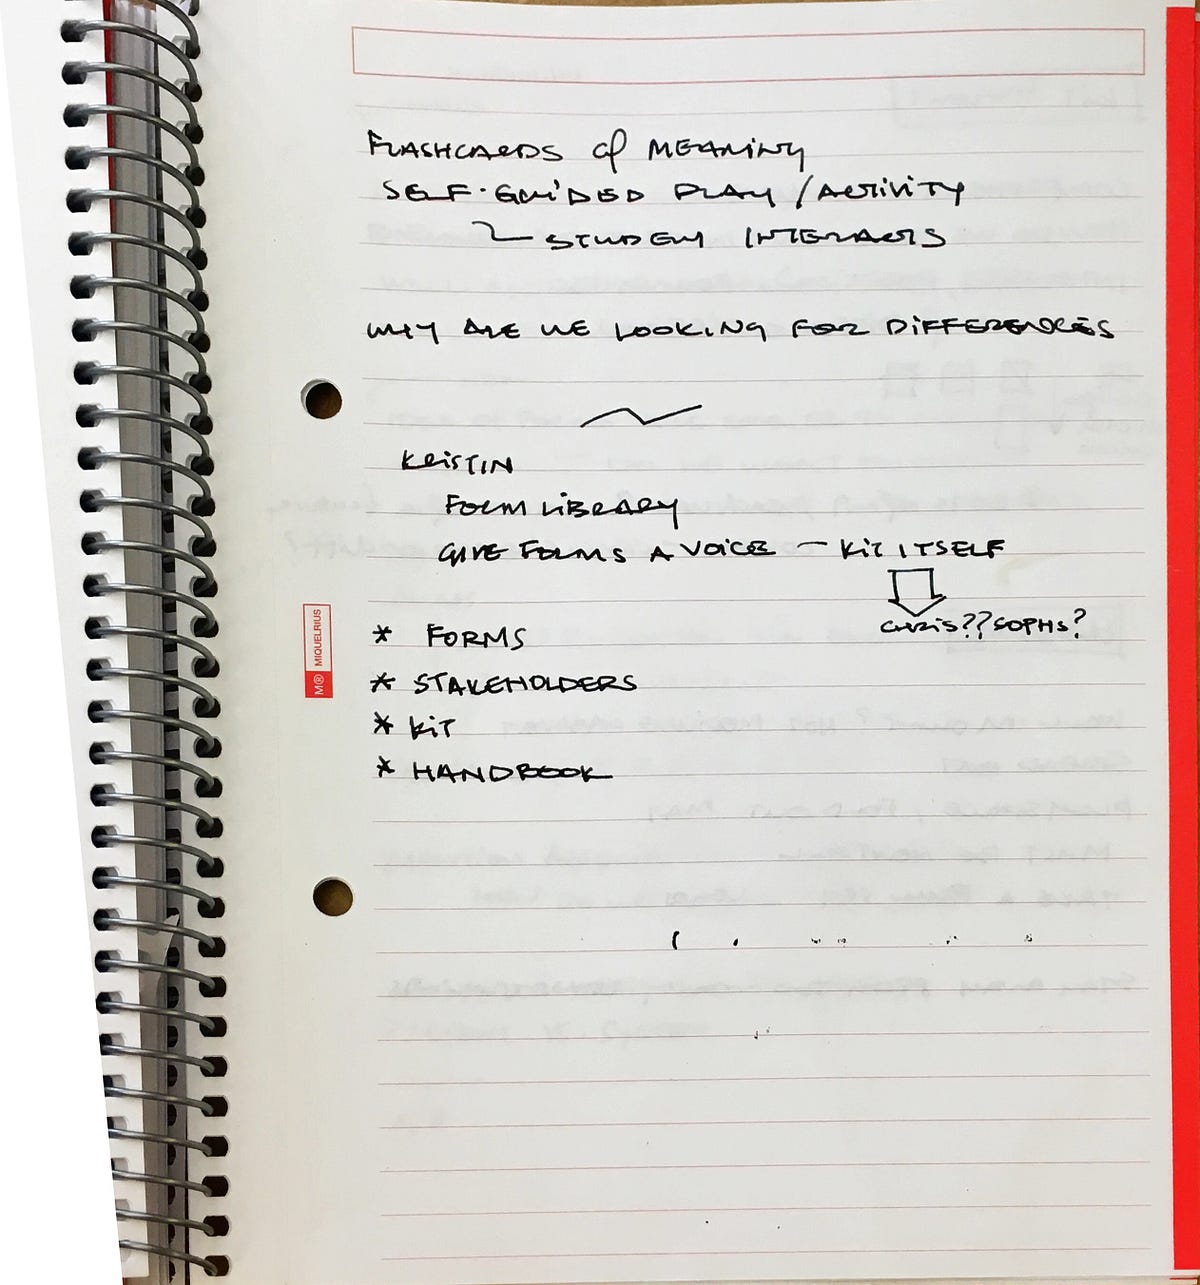 FLASHCARDS of MEANING
SELF-GUIDED PLAY / ACTIVITY
STUDENT INTERACTS
WHY ARE WE LOOKING FOR DIFFERENCES
KRISTIN
FORM LIBRARY
GIVE FORMS A VOICE — KIT ITSELF
CHRIS?? SOPHS?
* FORMS
* STAKEHOLDERS
* KIT
* HANDBOOK
M® MIQUELRIUS